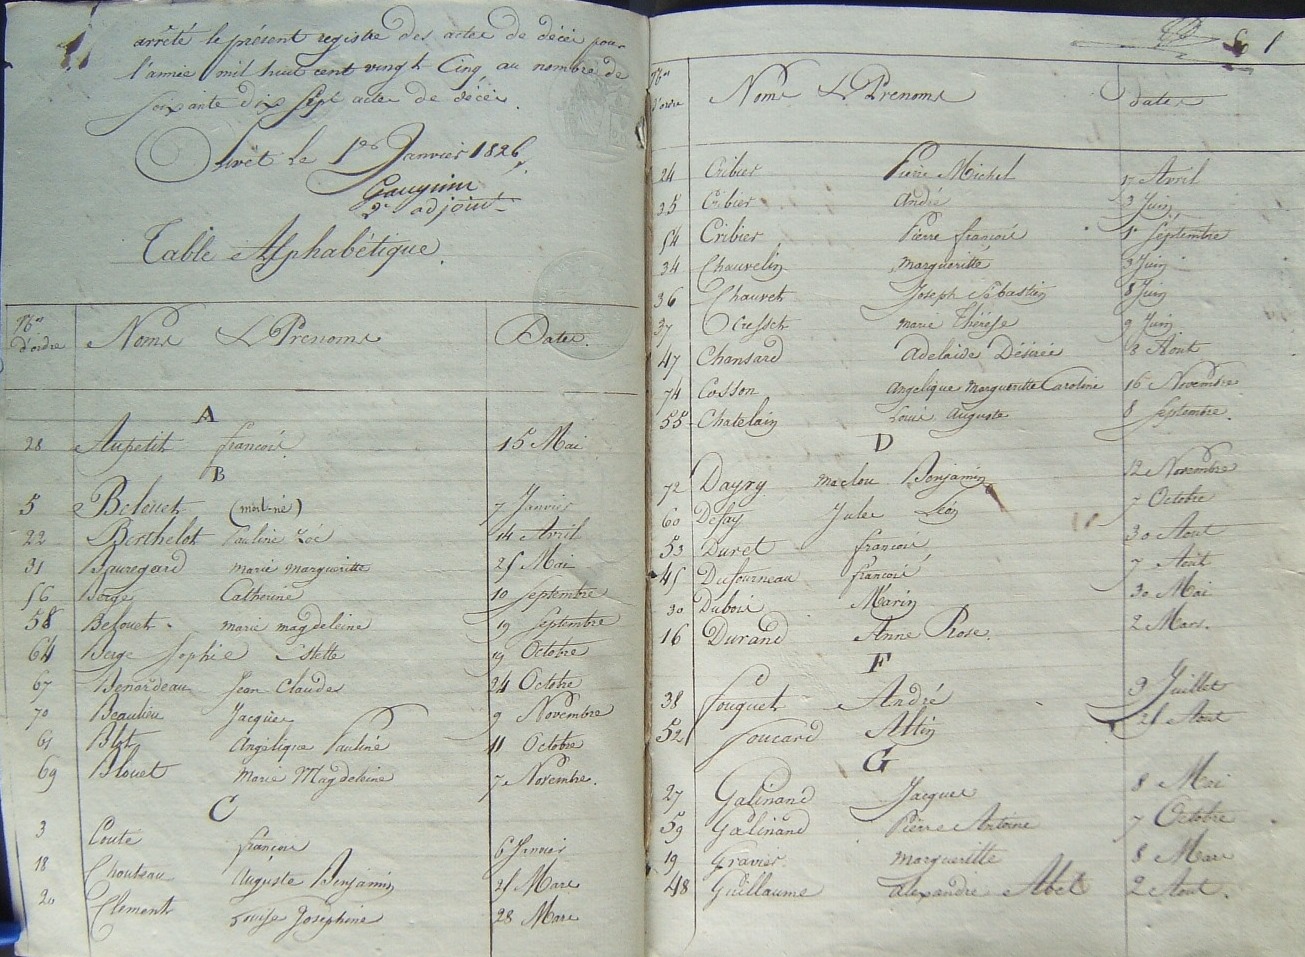 arrêté le présent registre des actes de décès pour
l'année mil huit cent vingt Cinq au nombre de
soixante dix Sept actes de décès.
Olivet le 1er Janvier 1826,
2e adjoint
Table Alphabétique.
Nos d'ordre Noms & Prenoms Dates.
A
28 Aupetit françois 15 Mai
B
5 Belouet (mort-né) 7 Janvier
22 Berthelot Pauline Zoé 14 Avril
31 Bauregard marie margueritte 25 Mai
56 Berge Catherine 10 Septembre
58 Belouet marie magdeleine 19 Septembre
64 Berge Sophie Estelle 19 Octobre
67 Benardeau Jean Claude 24 Octobre
70 Beaulieu Jacques 9 Novembre
61 Blot Angélique Pauline 11 Octobre
69 Blouet Marie Magdeleine 7 Novembre.
C
3 Couté françois 6 Janvier
18 Chouteau Auguste Benjamin 21 Mars
20 Clement Louise Josephine 28 Mars
1
Nos d'ordre Noms & Prenoms dates
24 Cribier Pierre Michel 17 Avril
35 Cribier André 3 Juin
54 Cribier Pierre françois 1er Septembre
34 Chauvelin Margueritte 3 Juin
36 Chauvet Joseph Sébastien 8 Juin
37 Cresset marie Thérèse 9 Juin
47 Chansard Adelaide Désirée 8 Aout
74 Cosson Angelique Margueritte Caroline 16 Novembre
55 Chatelain Louis Auguste 8 Septembre.
D
72 Dayry maclou Benjamin 12 Novembre
60 Defay Jules Léon 7 Octobre
53 Duret françois 30 Aout
45 Dufourneau françois 7 Août
30 Dubois Marin 30 Mai
16 Durand Anne Rose. 2 Mars.
F
38 fouquet André 9 Juillet
52 foucard 21 Aout
G
27 Galinand Jacques 8 Mai
59 Galinand Pierre Antoine 7 Octobre
19 Gravier Margueritte 8 Mars
48 Guillaume alexandre Abel 2 Aout.